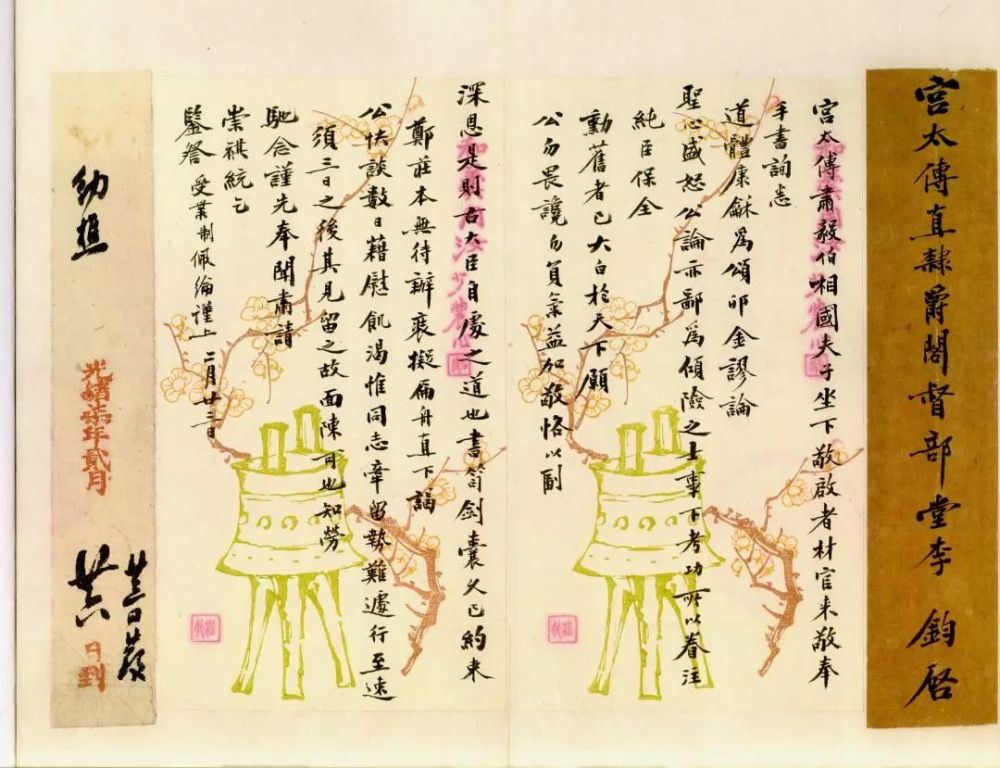 宮太傅直隸爵閣督部堂李 鈞啓
宮太傅肅毅伯相國夫子坐下敬啟者材官来敬奉
手書詢悉
道體康龢爲頌邱金謬論
聖心盛怒公論亦鄙爲傾險之士事下考功所以眷注
純臣保全
勳舊者已大白於天下願
公勿畏讒勿負氣益加敬恪以副
深恩是則古大臣自處之道也書笥劍囊久已約束
鄭莊本無待辦裝擬扁舟直下謁
公快談數日藉慰飢渴惟同志牽留勢難遽行至速
須三日之後其見留之故面陳可也知勞
馳念謹先奉聞肅請
崇祺統乞
鑒詧 受業制佩綸謹上 二月廿三日
幼樵
光緒柒年貳月 廿六 日到